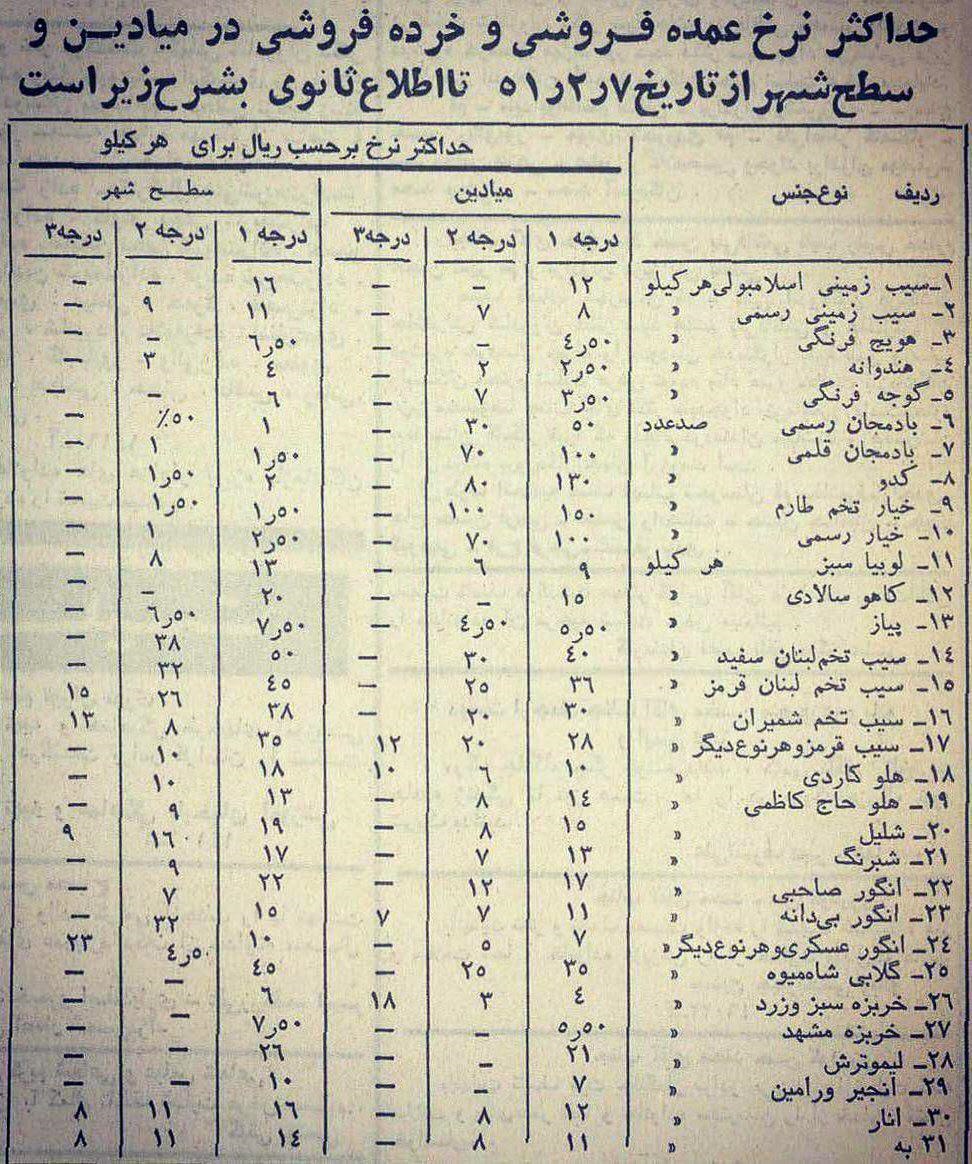 حداکثر نرخ عمده فروشی و خرده فروشی در میادین و
سطح شهر از تاریخ ۷ر۲ر۵۱ تا اطلاع ثانوی بشرح زیر است
حداکثر نرخ برحسب ریال برای هر کیلو
ردیف نوع جنس میادین سطح شهر
درجه ۱ درجه ۲ درجه۳ درجه ۱ درجه ۲ درجه۳
۱ـ سیب زمینی اسلامبولی هر کیلو ۱۲ – – ۱۶ – –
۲ـ سیب زمینی رسمی » ۸ ۷ – ۱۱ ۹ –
۳ـ هویج فرنگی » ۴ر۵۰ – – ۶ر۵۰ – –
۴ـ هندوانه » ۲ر۵۰ ۲ – ۴ ۳ –
۵ـ گوجه فرنگی » ۳ر۵۰ ۷ – ۶ – –
۶ـ بادمجان رسمی صدعدد ۵۰ ۳۰ – ۱ ۵۰٪ –
۷ـ بادمجان قلمی » ۱۰۰ ۷۰ – ۱ر۵۰ ۱ –
۸ـ کدو » ۱۳۰ ۸۰ – ۲ ۱ر۵۰ –
۹ـ خیار تخم طارم » ۱۵۰ ۱۰۰ – ۱ر۵۰ ۱ر۵۰ –
۱۰ـ خیار رسمی » ۱۰۰ ۷۰ – ۲ر۵۰ ۱ –
۱۱ـ لوبیا سبز هر کیلو ۹ ۶ – ۱۳ ۸ –
۱۲ـ کاهو سالادی » ۱۵ – – ۲۰ – –
۱۳ـ پیاز » ۵ر۵۰ ۴ر۵۰ – ۷ر۵۰ ۶ر۵۰ –
۱۴ـ سیب تخم لبنان سفید » ۴۰ ۳۰ – ۵۰ ۳۸ –
۱۵ـ سیب تخم لبنان قرمز » ۳۶ ۲۵ – ۴۵ ۳۲ –
۱۶ـ سیب تخم شمیران » ۳۰ ۲۰ – ۳۸ ۲۶ ۱۵
۱۷ـ سیب قرمز و هر نوع دیگر » ۲۸ ۲۰ ۱۲ ۳۵ ۸ ۱۳
۱۸ـ هلو کاردی » ۱۰ ۶ ۱۰ ۱۸ ۱۰ –
۱۹ـ هلو حاج کاظمی » ۱۴ ۸ – ۱۳ ۱۰ –
۲۰ـ شلیل » ۱۵ ۸ – ۱۹ ۹ –
۲۱ـ شبرنگ » ۱۳ ۷ – ۱۷ ۱۶ ۹
۲۲ـ انگور صاحبی » ۱۷ ۱۲ – ۲۲ ۹ –
۲۳ـ انگور بی‌دانه » ۱۱ ۷ ۷ ۱۵ ۷ –
۲۴ـ انگور عسکری و هر نوع دیگر » ۷ ۵ – ۱۰ ۳۲ ۲۳
۲۵ـ گلابی شاه‌میوه » ۳۵ ۲۵ – ۴۵ ۴ر۵۰ –
۲۶ـ خربزه سبز وزرد » ۴ ۳ ۱۸ ۶ – –
۲۷ـ خربزه مشهد » ۵ر۵۰ – – ۷ر۵۰ – –
۲۸ـ لیموترش » ۲۱ – – ۲۶ – –
۲۹ـ انجیر ورامین » ۷ – – ۱۰ – –
۳۰ـ انار » ۱۲ ۸ – ۱۶ ۱۱ ۸
۳۱ به » ۱۱ ۸ – ۱۴ ۱۱ ۸